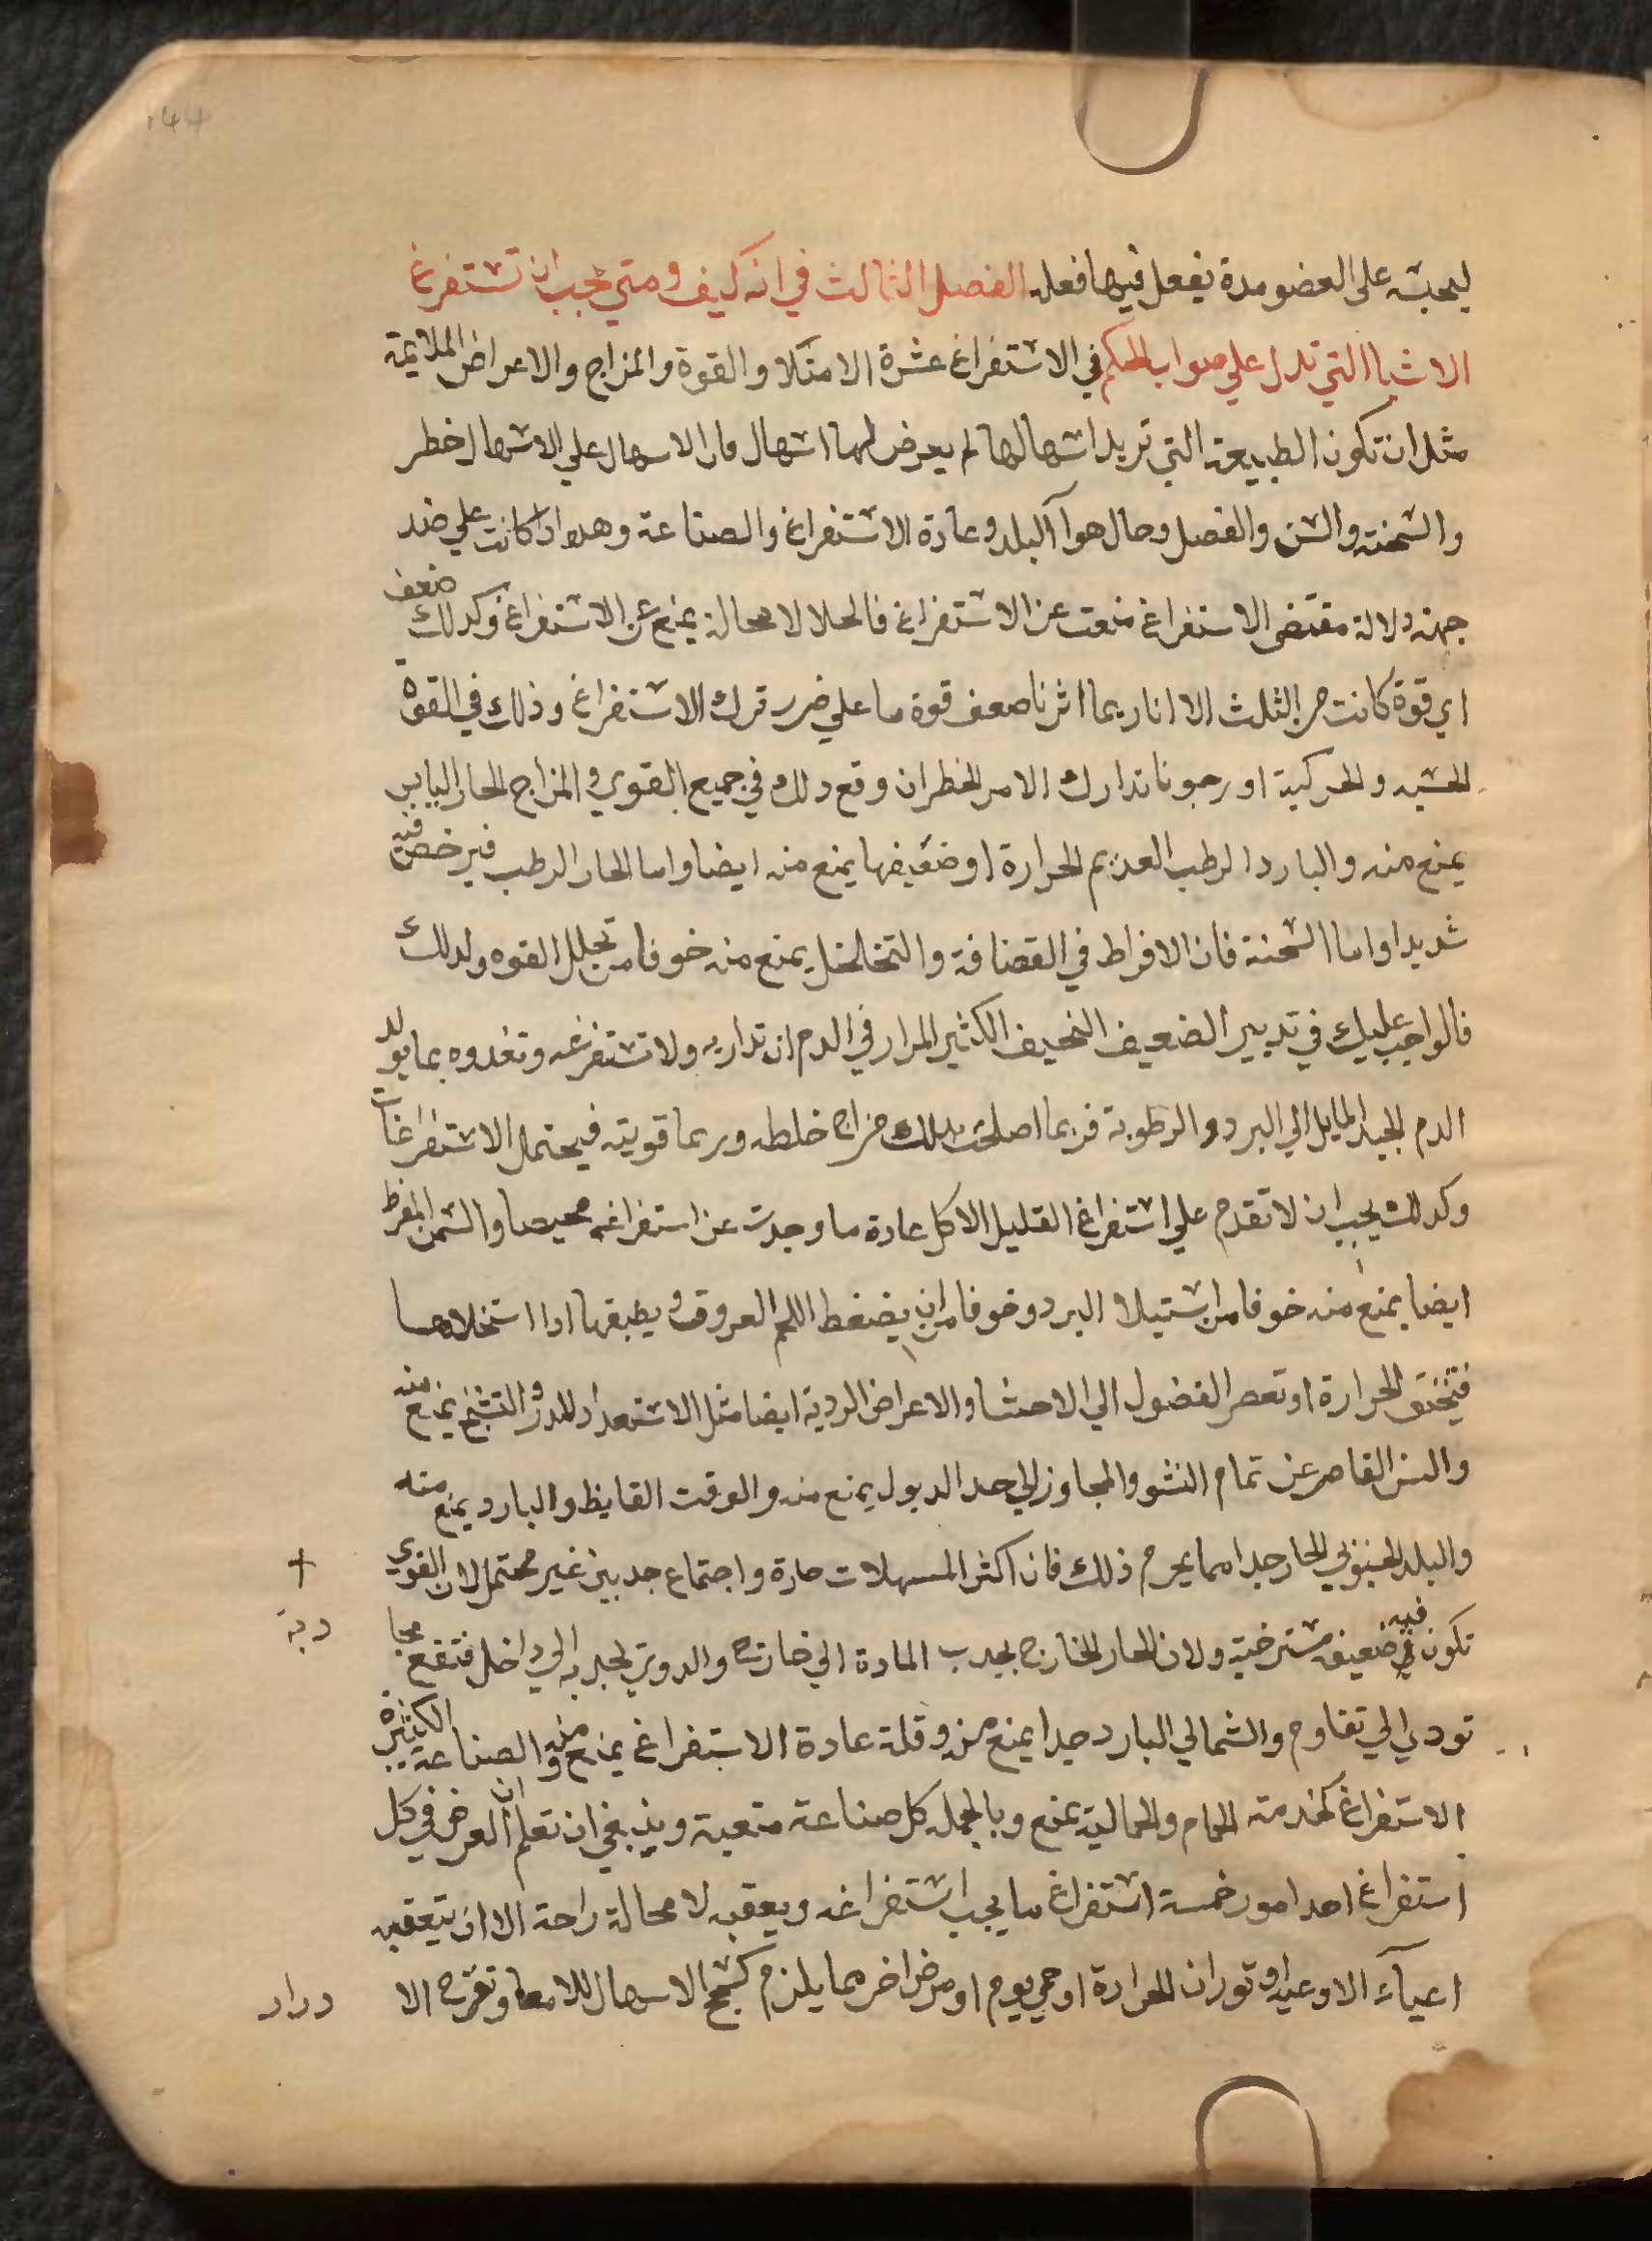 144
ليحبسه على العضو مدة يفعل فيها فعله الفصل الثالث في انه كيف ومتي يجب ان تستفرغ
الاشيا التي تدل علي صواب الحكم في الاستفراغ عشرة الامتلا والقوة والمزاج والاعراض الملايمة
مثل ان تكون الطبيعة التي تريد اسهالها لم يعرض لها اسهال فان الاسهال علي الاسهال خطر
والسحنة والسن والفصل وحال هوآ البلد وعادة الاستفراغ والصناعة وهده ادا كانت علي ضد
جهة دلالة مقتضى الاستفراغ منعت عن الاستفراغ فالخلا لا محالة يمنع عن الاستفراغ وكدلك ضعف
اي قوة كانت من الثلث الا انا ربما اثرنا ضعف قوة ما علي ضرر ترك الاستفراغ وذلك في القوة
الحسيه والحركية او رجونا تدارك الامر الخطر ان وقع دلك في جميع القوي والمزاج الحار اليابس
يمنع منه والبارد الرطب العديم الحرارة او ضعيفها يمنع منه ايضا واما الحار الرطب فيرخص فيه
شديدا واما السحنة فان الافراط في القضافة والتخلخل يمنع منه خوفا من تحلل القوه ولدلك
فالواجب عليك في تدبير الضعيف النحيف الكثير المرار في الدم ان تداريه ولا تستفرغه وتغدوه بما يولد
الدم الجيد المايل الي البرد والرطوبة فربما اصلحت بدلك مزاج خلطه وربما قويته فيحتمل الاستفراغات
وكدلك يجب ان لا تقدم علي استفراغ القليل الاكل عادة ما وجدت عن استفراغه محيصا والسمن المفرط
ايضا يمنع منه خوفا من استيلا البرد وخوفا من ان يضغط اللحم العروق ويطبقها ادا استخلاها
فتختنق الحرارة او تعصر الفضول الي الاحشا والاعراض الردية ايضا مثل الاستعداد للدرب والتشنج يمنع منه
والسن القاصر عن تمام النشو والمجاوز الي حد الدبول يمنع منه والوقت القايظ والبارد يمنع منه
والبلد الجنوبي الحار جدا مما يحرم ذلك فان اكثر المسهلات حارة واجتماع حدين غير محتمل لان القوي
تكون فيه ضعيفة مسترخية ولان الحار الخارج يجدب المادة الي خارج والدوي يجدبه الي داخل فتقع مجا
دبة
تودي الي تقاوم والشمالي البارد جدا يمنع منه وقلة عادة الاستفراغ يمنع منه والصناعة الكثيرة
الاستفراغ كخدمته الحمام والحمالية يمنع وبالجمله كل صناعة متعبة وينبغي ان تعلم ان الغرض في كل
استفراغ احد امور خمسة استفراغ ما يجب استفراغه ويعقبه لا محالة راحة الا ان يتعقبه
اعيآء الاوعيه او ثوران الحرارة او حمي يوم او مرض اخر مما يلزم كسحج الاسهال للامعا وتقرح الا
درار